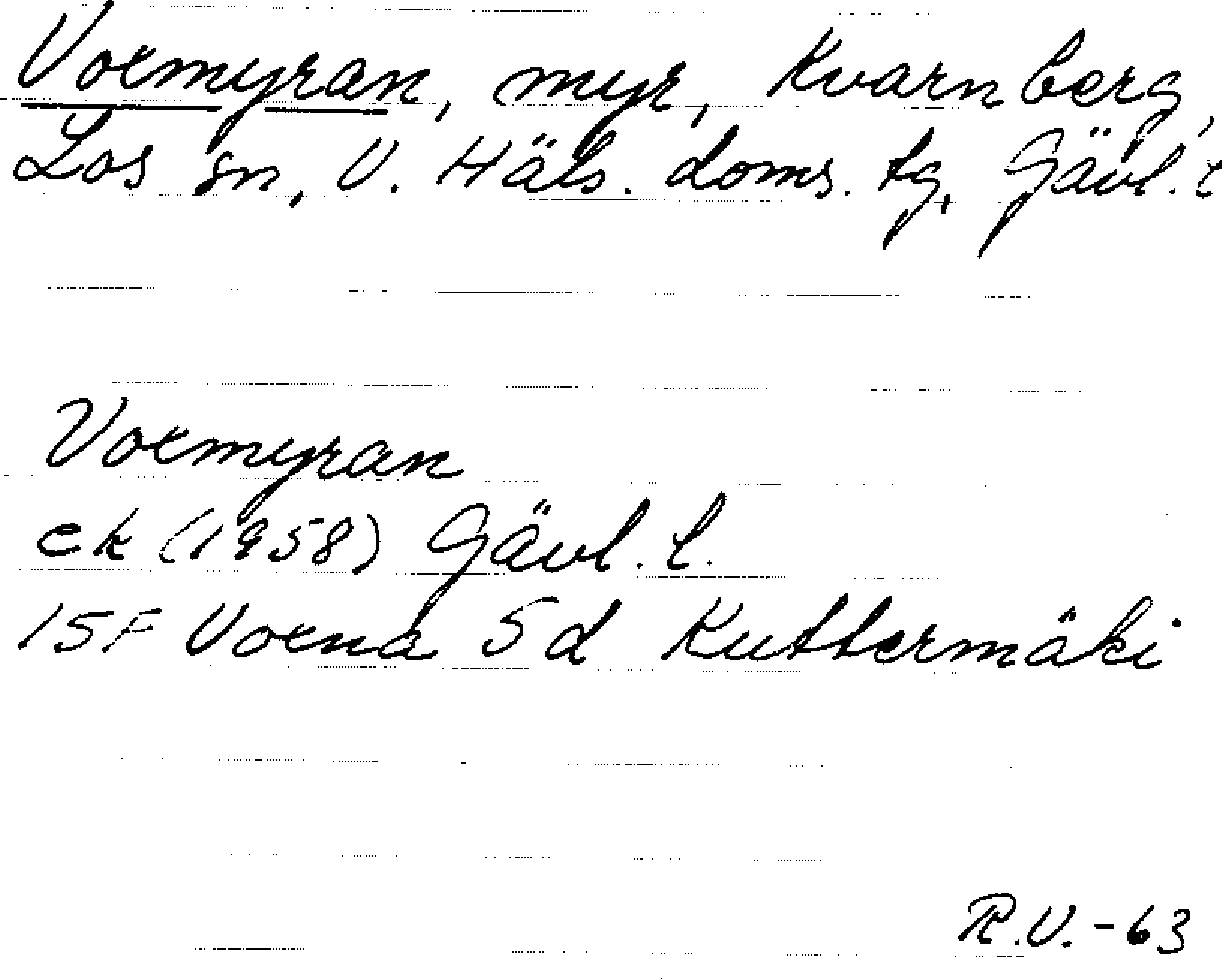 Voxmyran, myr, Kvarnberg,
Los sn, V. Häls. doms. tg, Gävl. l
Voxmyran
ek (1958) Gävl. l.
15F Voxna 5d Kuttermäki
R.V. - 63